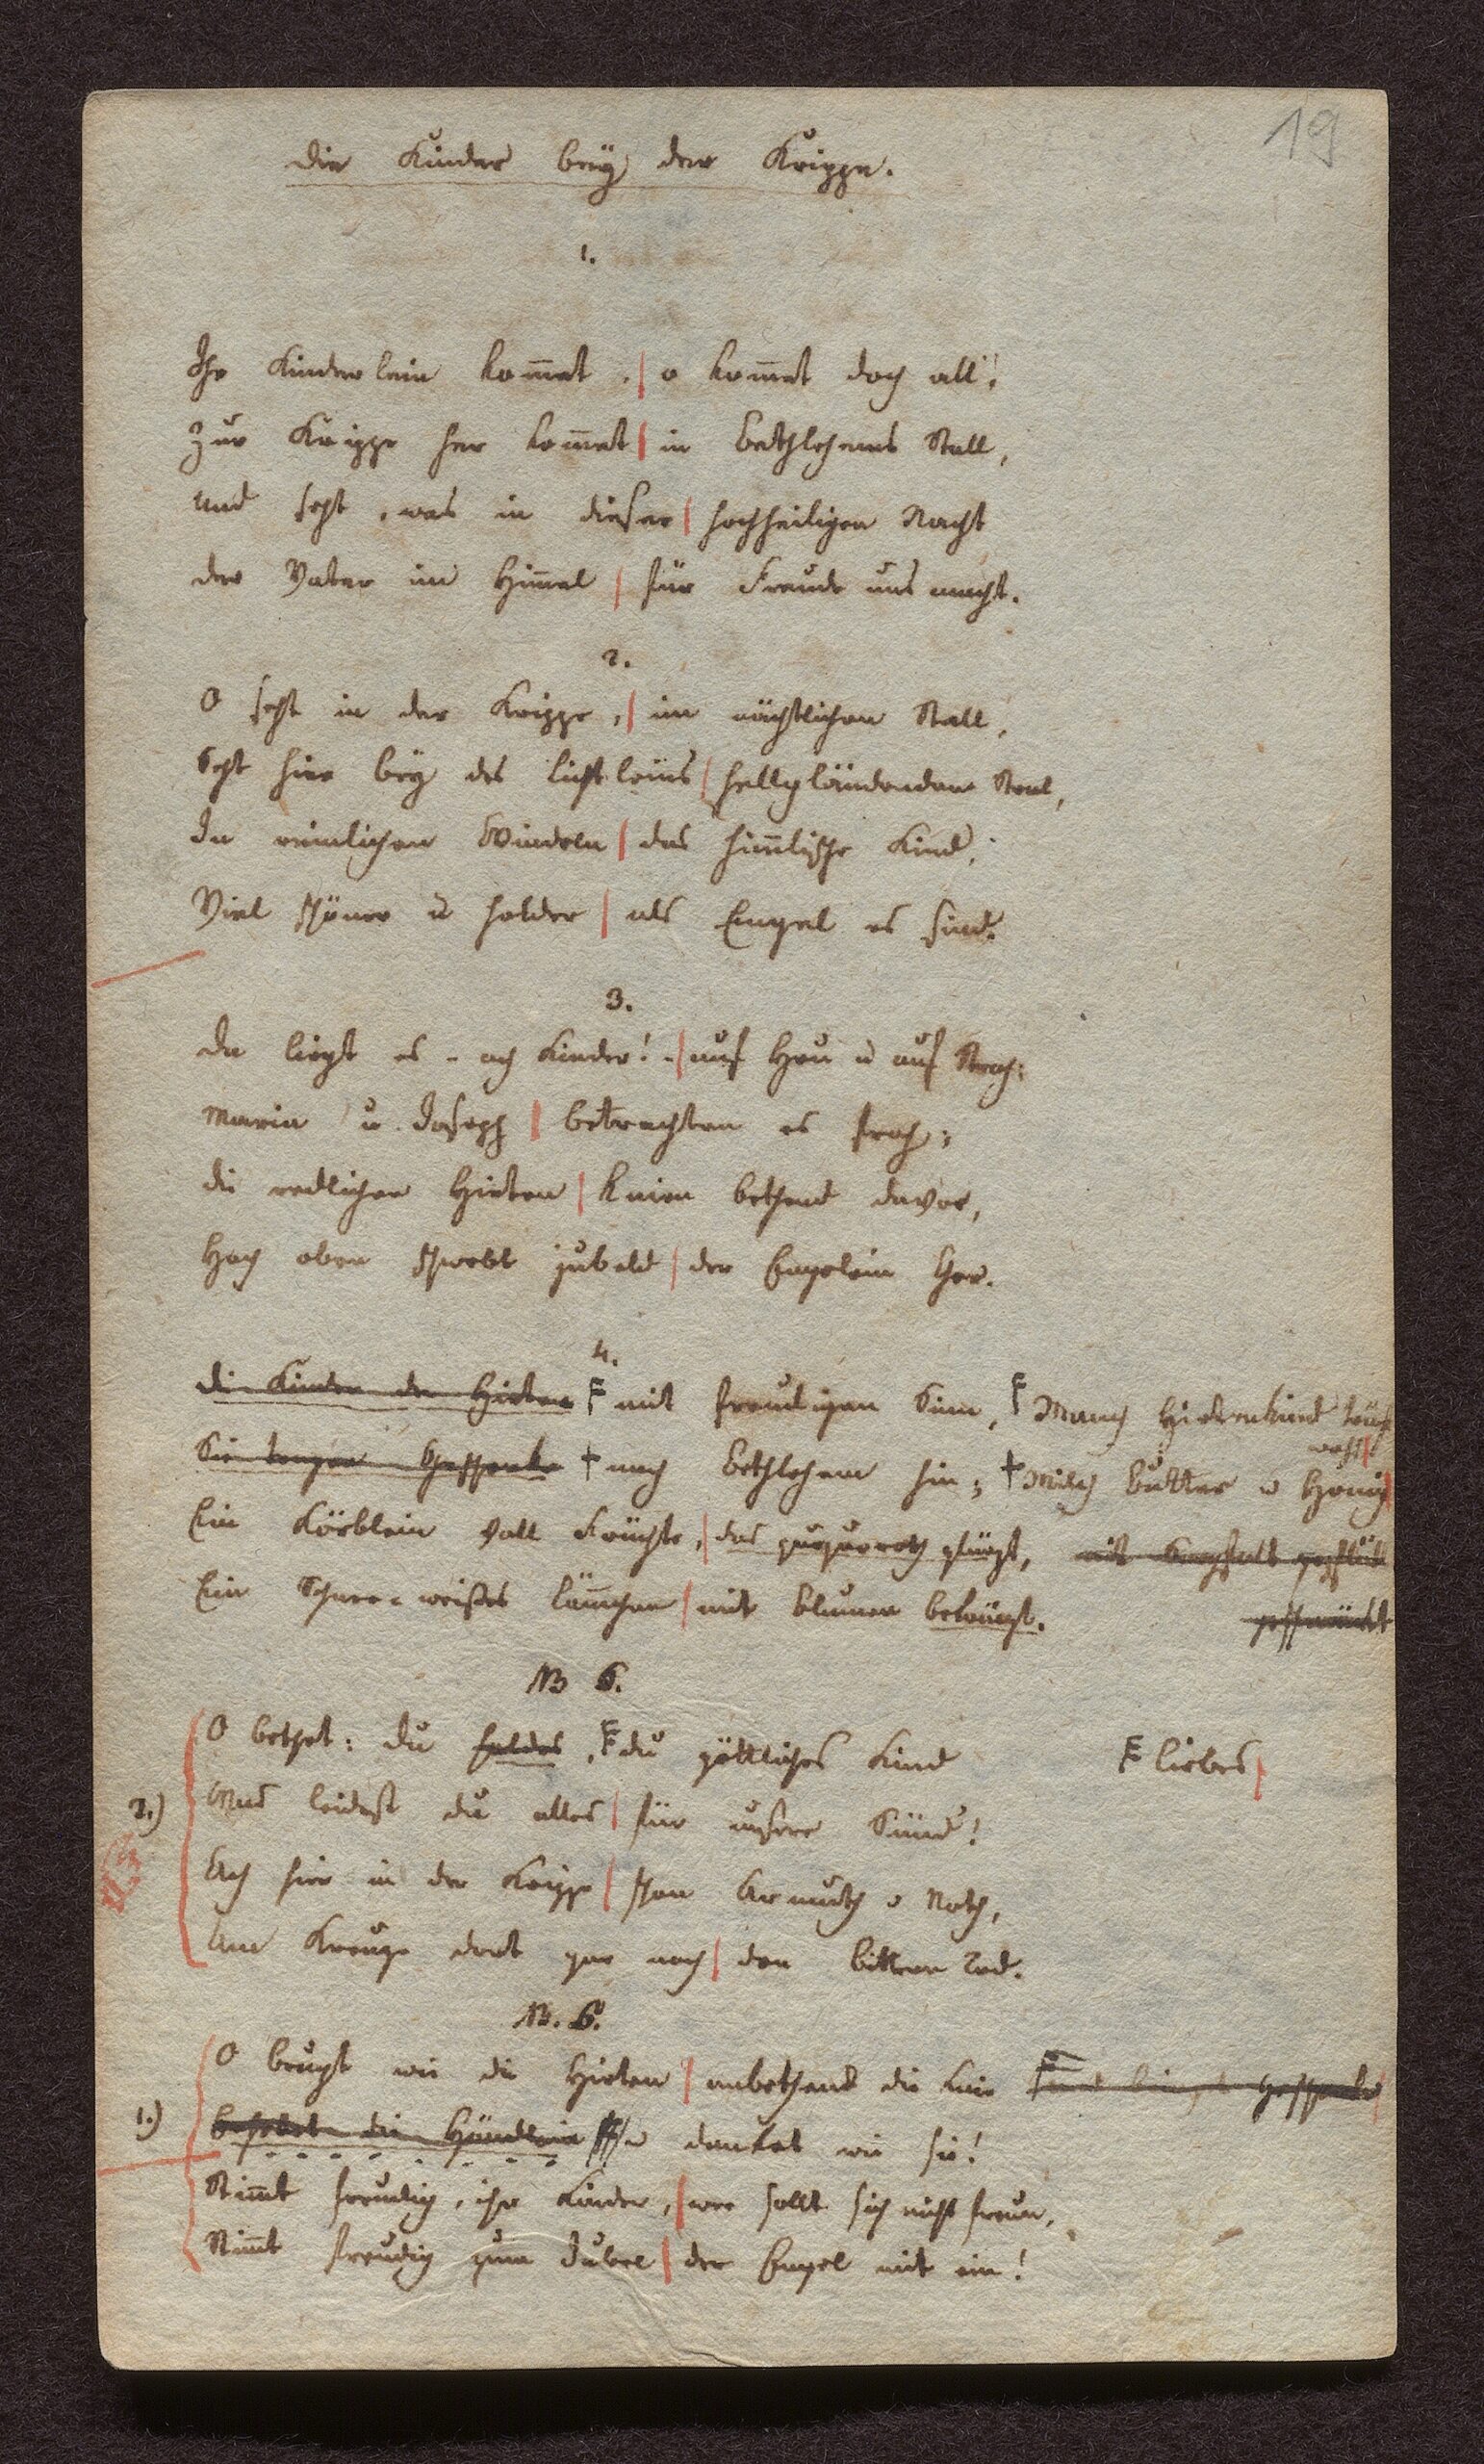 19
Die Kinder bey der Krippe.
1.
Ihr Kinderlein kom̅et, | o kom̅et doch all'!
Zur Krippe her kom̅et | in Bethlehems Stall,
Und seht, was in dieser | hochheiligen Nacht
der Vater im Him̅el | für Freude uns macht.
2.
O seht in der Krippe, | im nächtlichen Stall,
Seht hier bey des Lichtleins | hellglänzendem Stral,
In reinlichen Windeln | das him̅lische Kind,
Viel schöner u holder | als Engel es sind.
3.
Da liegt es - ach Kinder! - | auf Heu u auf Stroh;
Maria u. Joseph | betrachten es froh;
die redlichen Hirten | knien bethend davor,
Hoch oben schwebt jubelnd | der Engelein Chor.
4.
Die Kinder der Hirten F mit freudigen Sinn, F Manch Hirtenkind trägt
wohl
Sie tragen Geschenke † nach Bethlehem hin; † Milch Butter u Honig
Ein Körblein voll Früchte, | das purpurroth glänzt, mit Sorgfalt gepflückt
Ein Schnee-weißes Läm̅chen | mit Blumen bekränzt. geschmückt
NB 6.
O bethet: du holdes, F du göttliches Kind F liebes |
2.) Was leidest du alles | für unsere Sünd'!
NB
Ach hier in der Krippe | schon Armuth u Noth,
Am Kreuze dort gar noch | den bittern Tod.
NB. 5.
O beugt wie die Hirten | anbethend die Knie Geschenke
1.) Erhebet die Händlein u danket wie sie!
Stim̅t freudig, ihr Kinder, | wer sollt sich nicht freun,
Stim̅t freudig zum Jubel | der Engel mit ein!